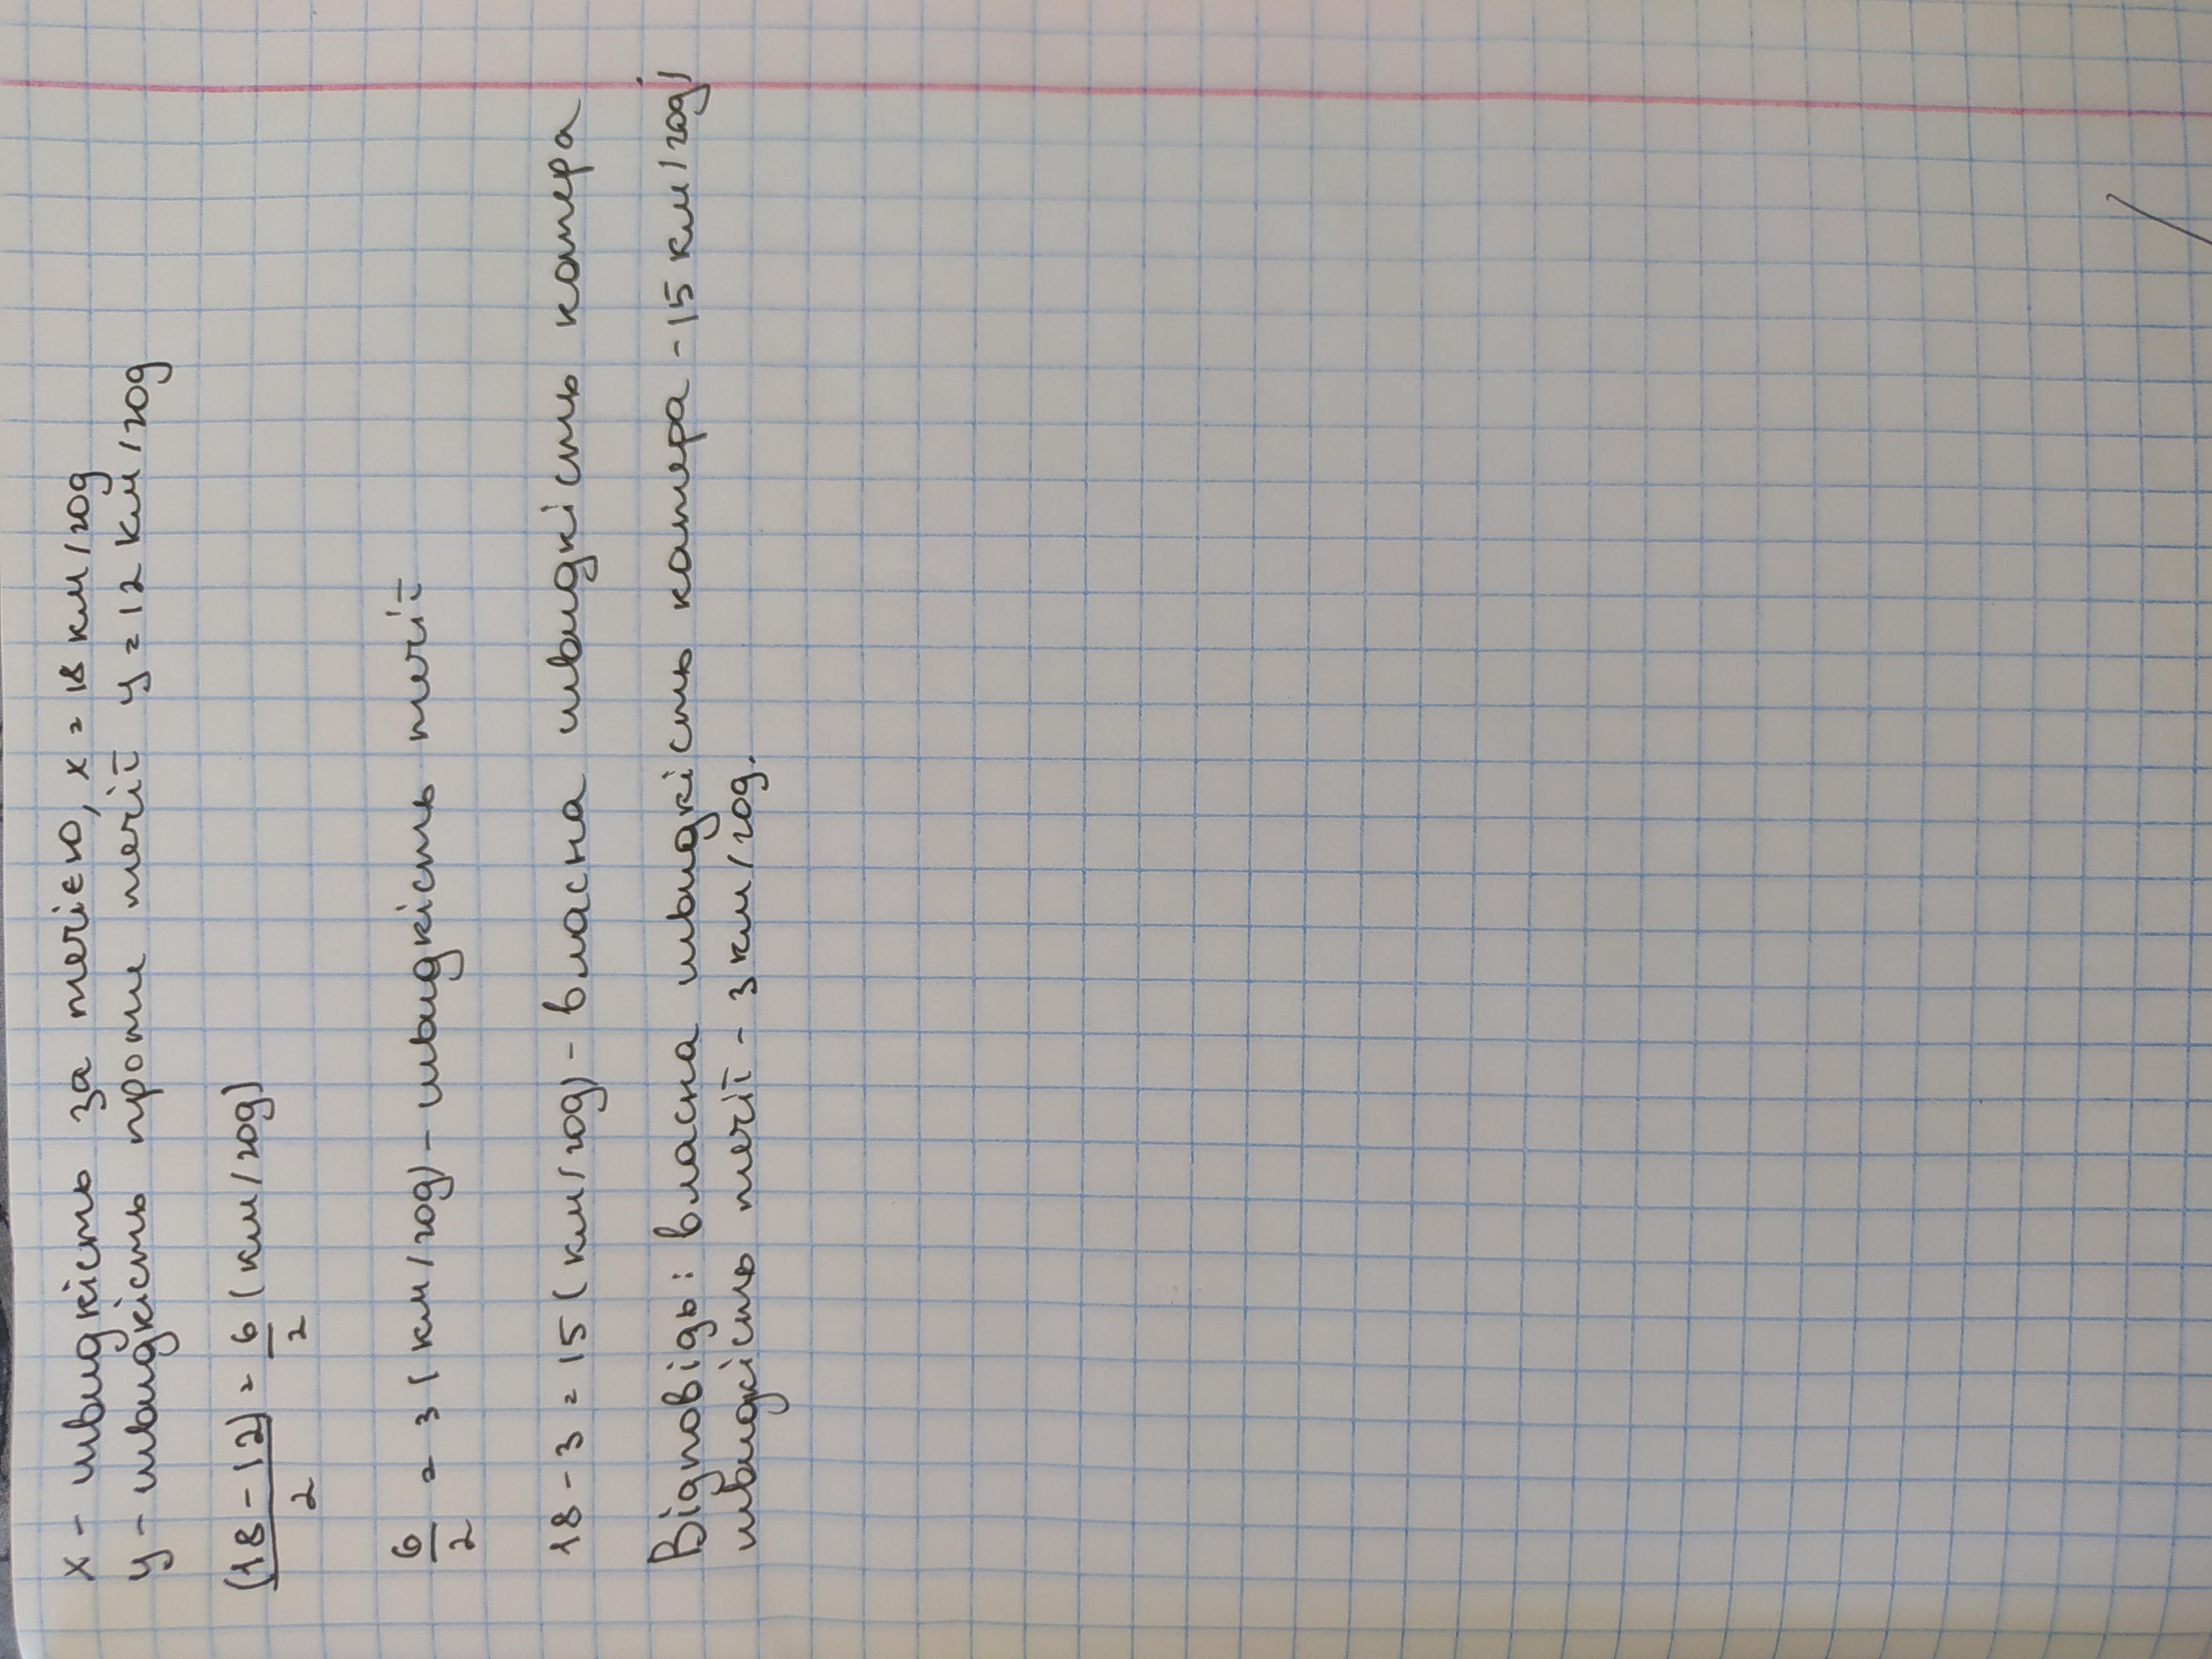 x - швидкість за течією, x = 18 км/год
y - швидкість проти течії y = 12 км/год
(18-12)/2 = 6/2 (км/год)
6/2 = 3 (км/год) - швидкість течії
18 - 3 = 15 (км/год) - власна швидкість катера
Відповідь: власна швидкість катера - 15 км/год,
швидкість течії - 3 км/год.